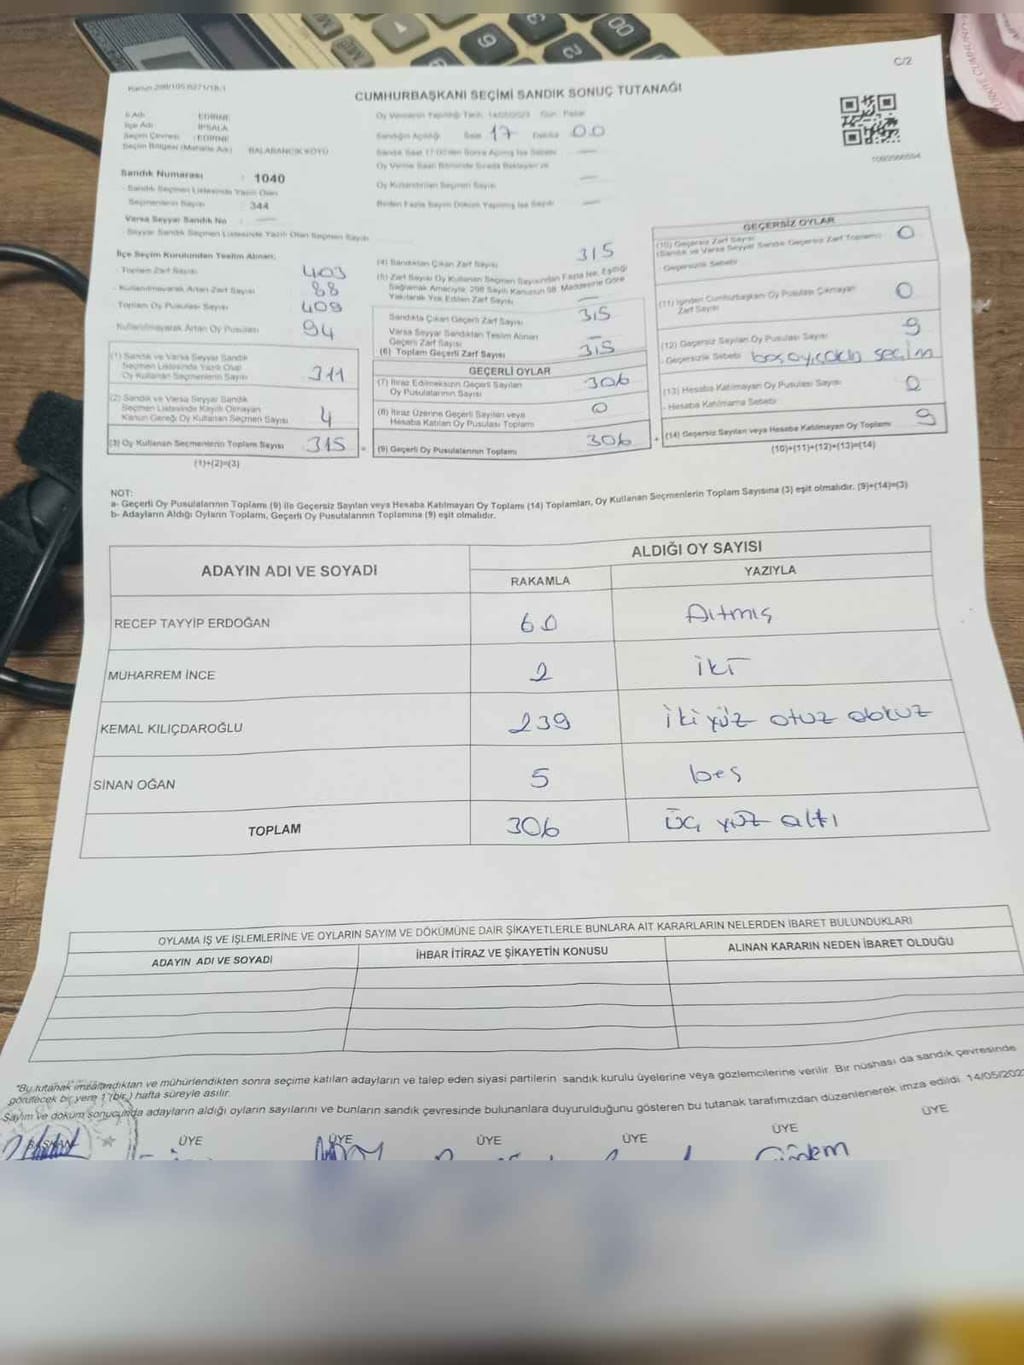 C/2
CUMHURBAŞKANI SEÇİMİ SANDIK SONUÇ TUTANAĞI
İl Adı : EDİRNE
İlçe Adı : İPSALA
Seçim Çevresi : EDİRNE
Seçim Bölgesi (Mahalle Adı) : BALABANCIK KÖYÜ
Sandık Numarası : 1040
Sandık Seçmen Listesinde Yazılı Olan
Seçmenlerin Sayısı : 344
Varsa Seyyar Sandık No
Seyyar Sandık Seçmen Listesinde Yazılı Olan Seçmen Sayısı
Oy Vermenin Yapıldığı Tarih: 14/05/2023 Gün: Pazar
Sandığın Açıldığı Saat 17 Dakika 00
Sandık Saat 17:00'den Sonra Açılmış İse Sebebi
Oy Verme Saati Bitiminde Sırada Bekleyen ve
Oy Kullandırılan Seçmen Sayısı
Birden Fazla Sayım Döküm Yapılmış İse Sayısı
İlçe Seçim Kurulundan Teslim Alınan;
Toplam Zarf Sayısı 403
Kullanılmayarak Artan Zarf Sayısı 88
Toplam Oy Pusulası Sayısı 409
Kullanılmayarak Artan Oy Pusulası 94
(1) Sandık ve Varsa Seyyar Sandık
Seçmen Listesinde Yazılı Olup
Oy Kullanan Seçmenlerin Sayısı 311
(2) Sandık ve Varsa Seyyar Sandık
Seçmen Listesinde Kayıtlı Olmayan
Kanun Gereği Oy Kullanan Seçmen Sayısı 4
(3) Oy Kullanan Seçmenlerin Toplam Sayısı 315
(1)+(2)=(3)
(4) Sandıktan Çıkan Zarf Sayısı 315
(5) Zarf Sayısı Oy Kullanan Seçmen Sayısından Fazla İse, Eşitliği
Sağlamak Amacıyla, 298 Sayılı Kanunun 98. Maddesine Göre
Yakılarak Yok Edilen Zarf Sayısı
Sandıkta Çıkan Geçerli Zarf Sayısı 315
Varsa Seyyar Sandıktan Teslim Alınan
Geçerli Zarf Sayısı
(6) Toplam Geçerli Zarf Sayısı 315
GEÇERLİ OYLAR
(7) İtiraz Edilmeksizin Geçerli Sayılan
Oy Pusulalarının Sayısı 306
(8) İtiraz Üzerine Geçerli Sayılan veya
Hesaba Katılan Oy Pusulası Toplamı 0
(9) Geçerli Oy Pusulalarının Toplamı 306
GEÇERSİZ OYLAR
(10) Geçersiz Zarf Sayısı
(Sandık ve Varsa Seyyar Sandık Geçersiz Zarf Toplamı) 0
Geçersizlik Sebebi
(11) İçinden Cumhurbaşkanı Oy Pusulası Çıkmayan
Zarf Sayısı 0
(12) Geçersiz Sayılan Oy Pusulası Sayısı 9
Geçersizlik Sebebi
(13) Hesaba Katılmayan Oy Pusulası Sayısı 0
Hesaba Katılmama Sebebi
(14) Geçersiz Sayılan veya Hesaba Katılmayan Oy Toplamı 9
(10)+(11)+(12)+(13)=(14)
NOT:
a- Geçerli Oy Pusulalarının Toplamı (9) ile Geçersiz Sayılan veya Hesaba Katılmayan Oy Toplamı (14) Toplamları, Oy Kullanan Seçmenlerin Toplam Sayısına (3) eşit olmalıdır. (9)+(14)=(3)
b- Adayların Aldığı Oyların Toplamı, Geçerli Oy Pusulalarının Toplamına (9) eşit olmalıdır.
ADAYIN ADI VE SOYADI ALDIĞI OY SAYISI
RAKAMLA YAZIYLA
RECEP TAYYİP ERDOĞAN 60 Altmış
MUHARREM İNCE 2 iki
KEMAL KILIÇDAROĞLU 239 iki yüz otuz dokuz
SİNAN OĞAN 5 beş
TOPLAM 306 üç yüz altı
OYLAMA İŞ VE İŞLEMLERİNE VE OYLARIN SAYIM VE DÖKÜMÜNE DAİR ŞİKAYETLERLE BUNLARA AİT KARARLARIN NELERDEN İBARET BULUNDUKLARI
ADAYIN ADI VE SOYADI İHBAR İTİRAZ VE ŞİKAYETİN KONUSU ALINAN KARARIN NEDEN İBARET OLDUĞU
"Bu tutanak imzalandıktan ve mühürlendikten sonra seçime katılan adayların ve talep eden siyasi partilerin sandık kurulu üyelerine veya gözlemcilerine verilir. Bir nüshası da sandık çevresinde
görülecek bir yere 1 (bir) hafta süreyle asılır.
Sayım ve döküm sonucunda adayların aldığı oyların sayılarını ve bunların sandık çevresinde bulunanlara duyurulduğunu gösteren bu tutanak tarafımızdan düzenlenerek imza edildi. 14/05/202
BAŞKAN ÜYE ÜYE ÜYE ÜYE ÜYE ÜYE